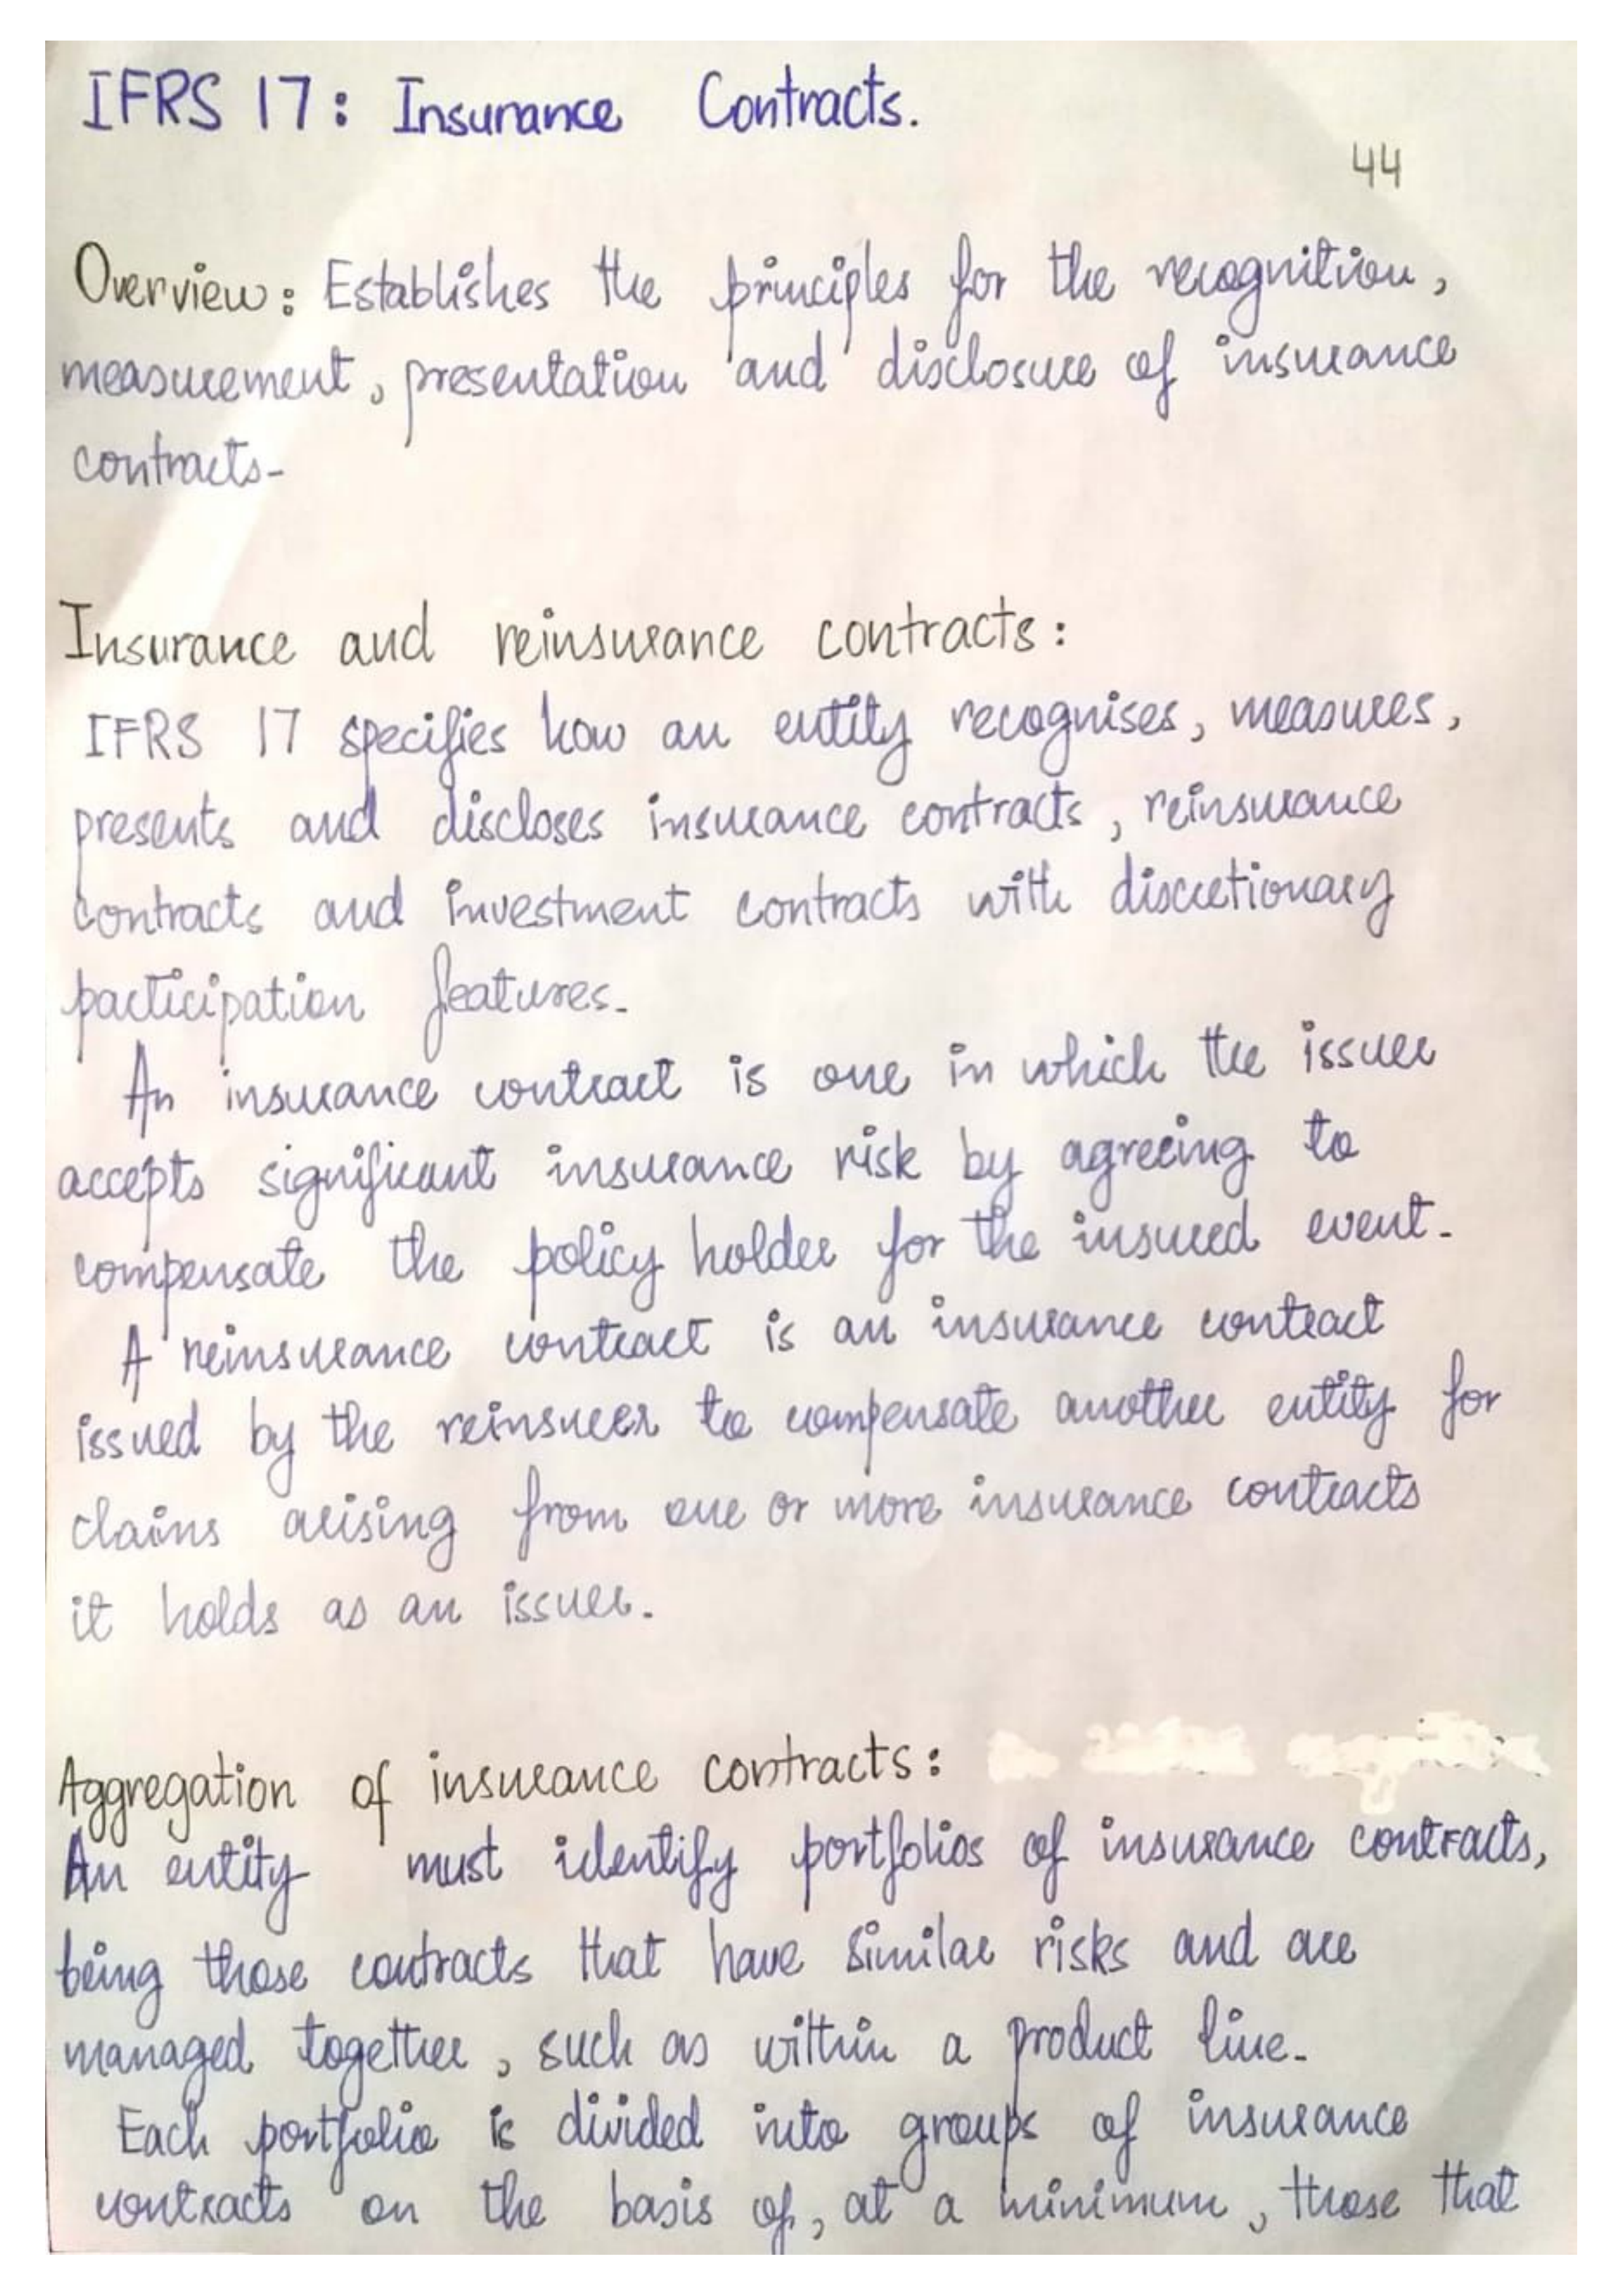 IFRS 17: Insurance Contracts.
44
Overview: Establishes the principles for the recognition,
measurement, presentation and disclosure of insurance
contracts-
Insurance and reinsurance contracts:
IFRS 17 specifies how an entity recognises, measures,
presents and discloses insurance contracts, reinsurance
contracts and investment contracts with discretionary
participation features.
An insurance contract is one in which the issuer
accepts significant insurance risk by agreeing to
compensate the policy holder for the insured event.
A reinsurance contract is an insurance contract
issued by the reinsurer to compensate another entity for
claims arising from one or more insurance contracts
it holds as an issuer.
Aggregation of insurance contracts:
An entity must identify portfolios of insurance contracts,
being those contracts that have similar risks and are
managed together, such as within a product line.
Each portfolio is divided into groups of insurance
contracts on the basis of, at a minimum, those that